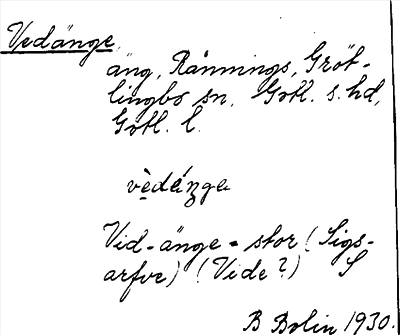 Vedänge,
äng, Rännings, Gröt-
lingbo sn, Gotl. s. hd,
Gotl. l.
Vid-änge-stor (Sigs-
arfve) (Vide?) S
B Bolin 1930.